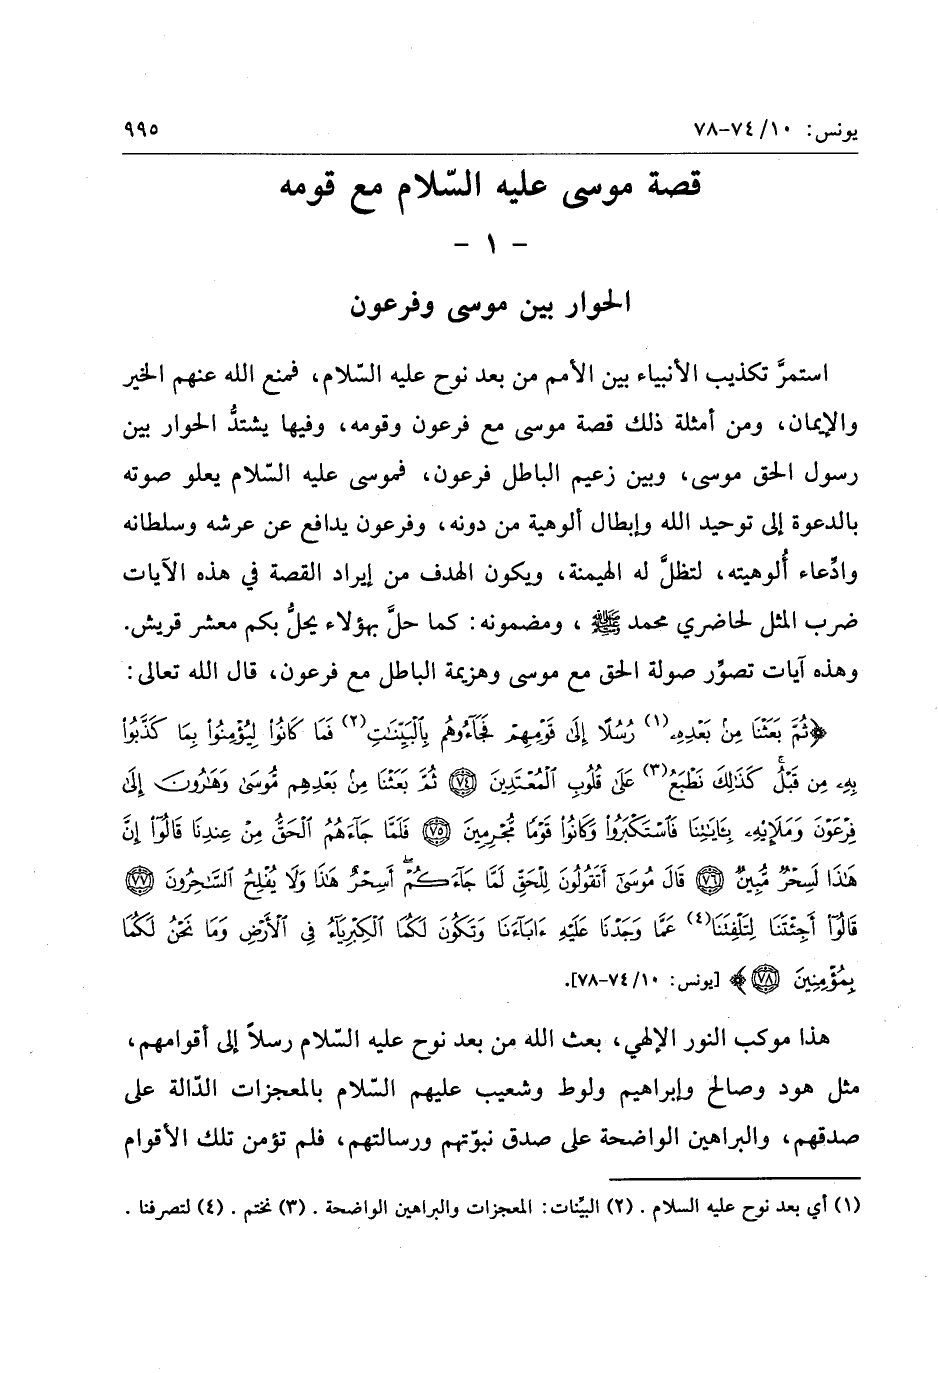 يونس: ١٠/ ٧٤-٧٨ ٩٩٥
قصة موسى عليه السّلام مع قومه
- ١ -
الحوار بين موسى وفرعون
استمرَّ تكذيب الأنبياء بين الأمم من بعد نوح عليه السّلام، فمنع الله عنهم الخير
والإيمان، ومن أمثلة ذلك قصة موسى مع فرعون وقومه، وفيها يشتدُّ الحوار بين
رسول الحق موسى، وبين زعيم الباطل فرعون، فموسى عليه السّلام يعلو صوته
بالدعوة إلى توحيد الله وإبطال ألوهية من دونه، وفرعون يدافع عن عرشه وسلطانه
وادِّعاء أُلوهيته، لتظلَّ له الهيمنة، ويكون الهدف من إيراد القصة في هذه الآيات
ضرب المثل لحاضري محمد ﷺ ، ومضمونه: كما حلَّ بهؤلاء يحلُّ بكم معشر قريش.
وهذه آيات تصوِّر صولة الحق مع موسى وهزيمة الباطل مع فرعون، قال الله تعالى:
﴿ثُمَّ بَعَثْنَا مِنۢ بَعْدِهِۦ(١) رُسُلًا إِلَىٰ قَوْمِهِمْ فَجَآءُوهُم بِٱلْبَيِّنَٰتِ(٢) فَمَا كَانُوا۟ لِيُؤْمِنُوا۟ بِمَا كَذَّبُوا۟
بِهِۦ مِن قَبْلُ ۚ كَذَٰلِكَ نَطْبَعُ(٣) عَلَىٰ قُلُوبِ ٱلْمُعْتَدِينَ ٧٤ ثُمَّ بَعَثْنَا مِنۢ بَعْدِهِم مُّوسَىٰ وَهَٰرُونَ إِلَىٰ
فِرْعَوْنَ وَمَلَإِي۟هِۦ بِـَٔايَٰتِنَا فَٱسْتَكْبَرُوا۟ وَكَانُوا۟ قَوْمًا مُّجْرِمِينَ ٧٥ فَلَمَّا جَآءَهُمُ ٱلْحَقُّ مِنْ عِندِنَا قَالُوٓا۟ إِنَّ
هَٰذَا لَسِحْرٌ مُّبِينٌ ٧٦ قَالَ مُوسَىٰٓ أَتَقُولُونَ لِلْحَقِّ لَمَّا جَآءَكُمْ ۖ أَسِحْرٌ هَٰذَا وَلَا يُفْلِحُ ٱلسَّٰحِرُونَ ٧٧
قَالُوٓا۟ أَجِئْتَنَا لِتَلْفِتَنَا(٤) عَمَّا وَجَدْنَا عَلَيْهِ ءَابَآءَنَا وَتَكُونَ لَكُمَا ٱلْكِبْرِيَآءُ فِى ٱلْأَرْضِ وَمَا نَحْنُ لَكُمَا
بِمُؤْمِنِينَ ٧٨﴾ [يونس: ١٠/ ٧٤-٧٨].
هذا موكب النور الإلهي، بعث الله من بعد نوح عليه السّلام رسلاً إلى أقوامهم،
مثل هود وصالح وإبراهيم ولوط وشعيب عليهم السّلام بالمعجزات الدّالة على
صدقهم، والبراهين الواضحة على صدق نبوّتهم ورسالتهم، فلم تؤمن تلك الأقوام
(١) أي بعد نوح عليه السلام . (٢) البيِّنات: المعجزات والبراهين الواضحة . (٣) نختم . (٤) لتصرفنا .